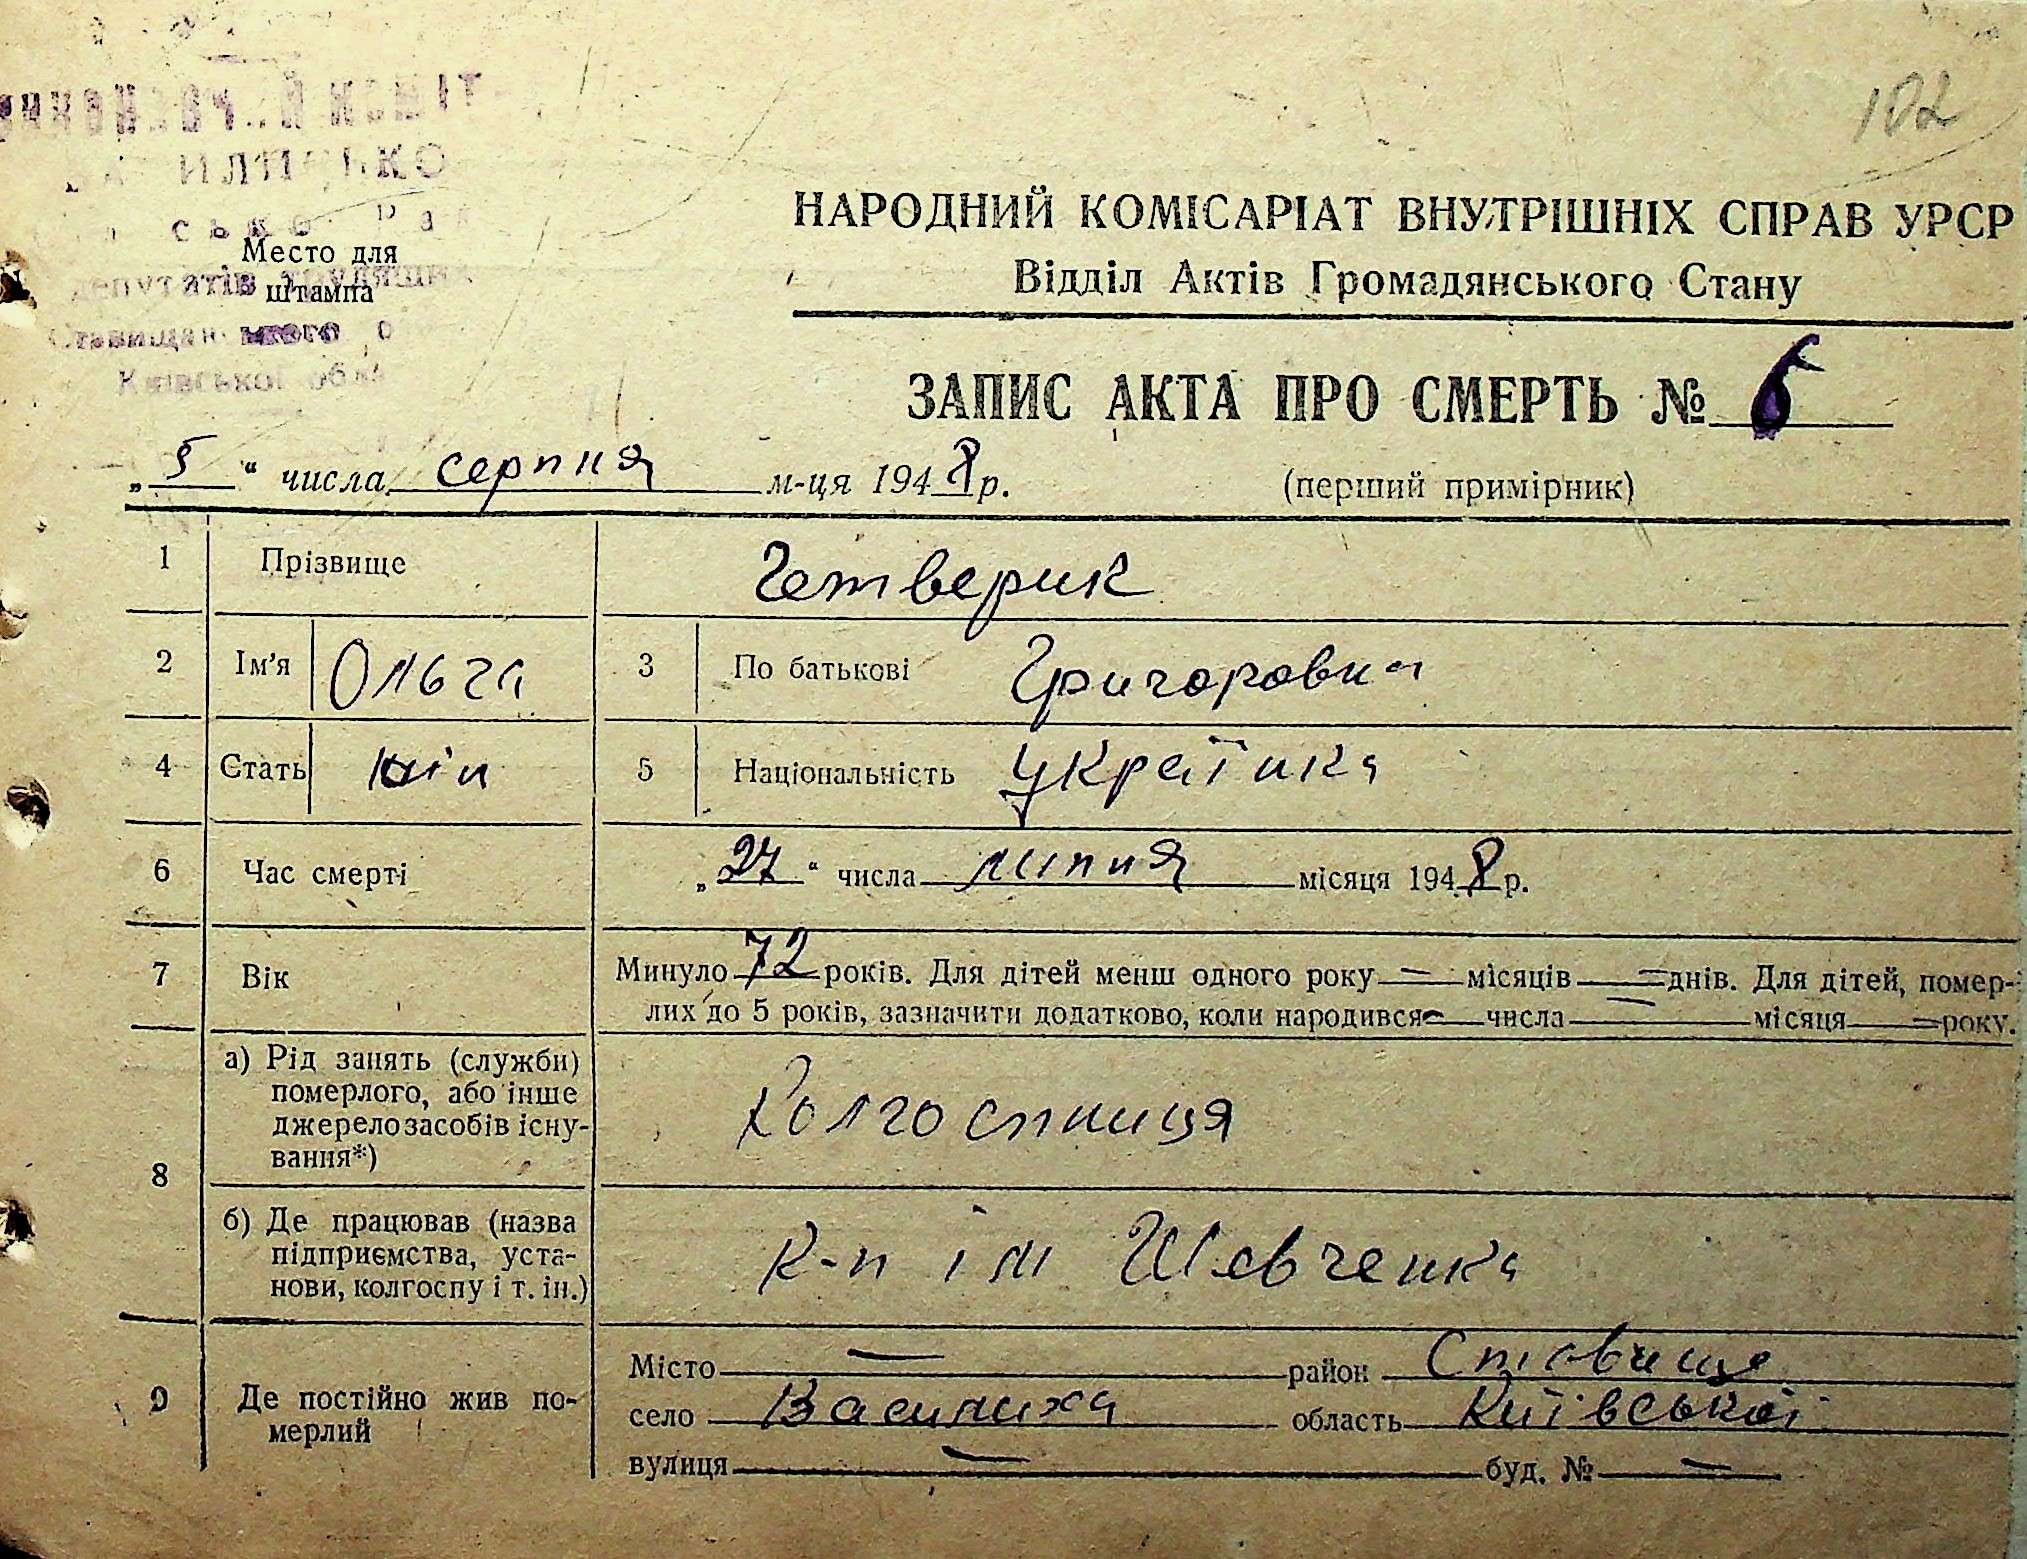 102
НАРОДНИЙ КОМІСАРІАТ ВНУТРІШНІХ СПРАВ УРСР
Відділ Актів Громадянського Стану
Место для
штампа
депутатів трудящих
Київської обл
ЗАПИС АКТА ПРО СМЕРТЬ № 6
„5“ числа серпня м-ця 1948 р.
(перший примірник)
1 Прізвище Четверик
2 Ім'я Ольга 3 По батькові Григоровна
4 Стать жін 5 Національність Українка
6 Час смерті „27“ числа липня місяця 1948 р.
7 Вік Минуло 72 років. Для дітей менш одного року — місяців — днів. Для дітей, помер-
лих до 5 років, зазначити додатково, коли народився — числа — місяця — року.
8 а) Рід занять (служби)
померлого, або інше
джерело засобів існу-
вання*)
Колгоспниця
б) Де працював (назва
підприємства, уста-
нови, колгоспу і т. ін.)
к-п ім Шевченка
9 Де постійно жив по-
мерлий
Місто — район Ставище
село Василиха область Київської
вулиця — буд. № —